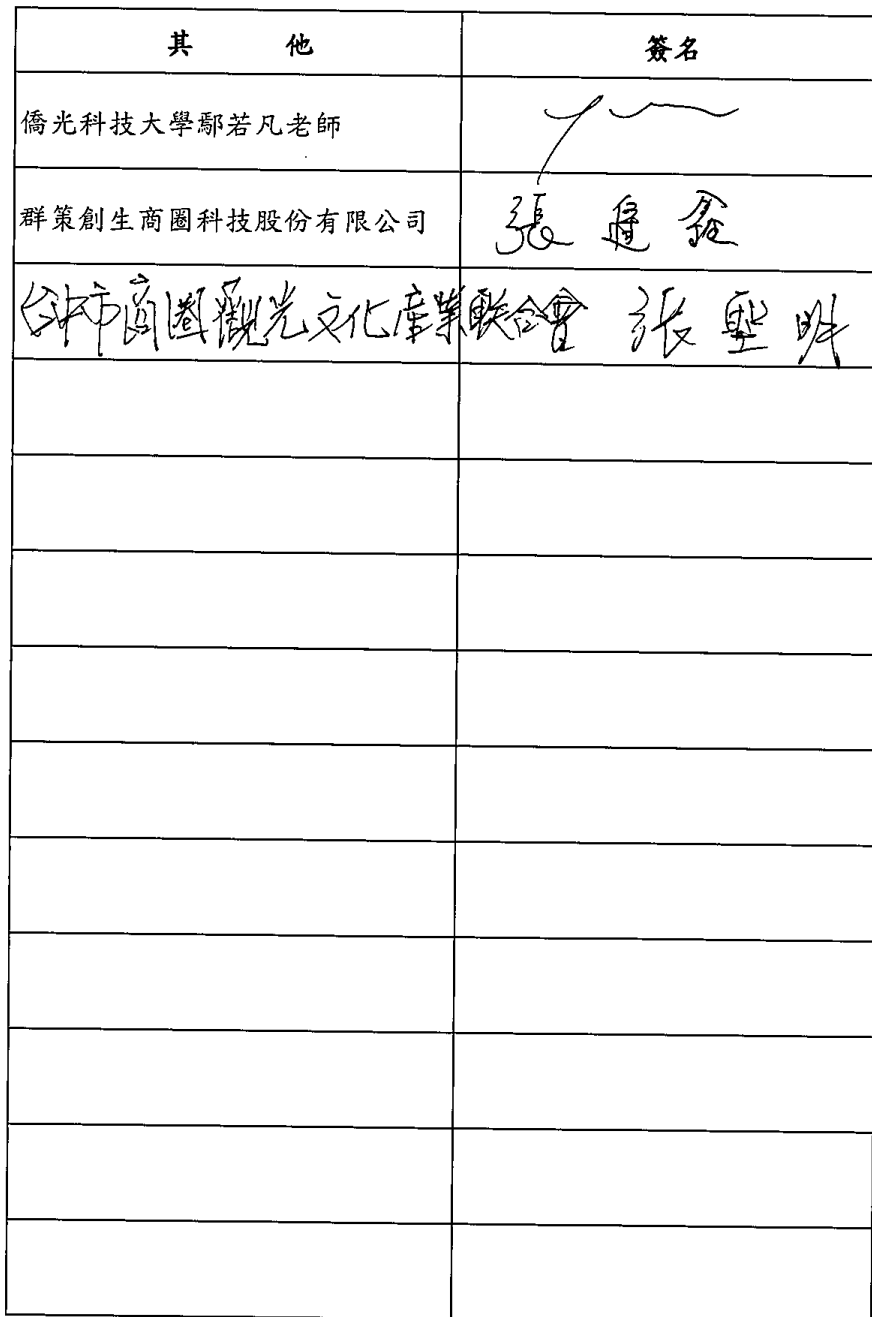 其 他 簽名
僑光科技大學鄢若凡老師
群策創生商圈科技股份有限公司 張 鑫
台中市商圈觀光文化產業聯合會 張聖時